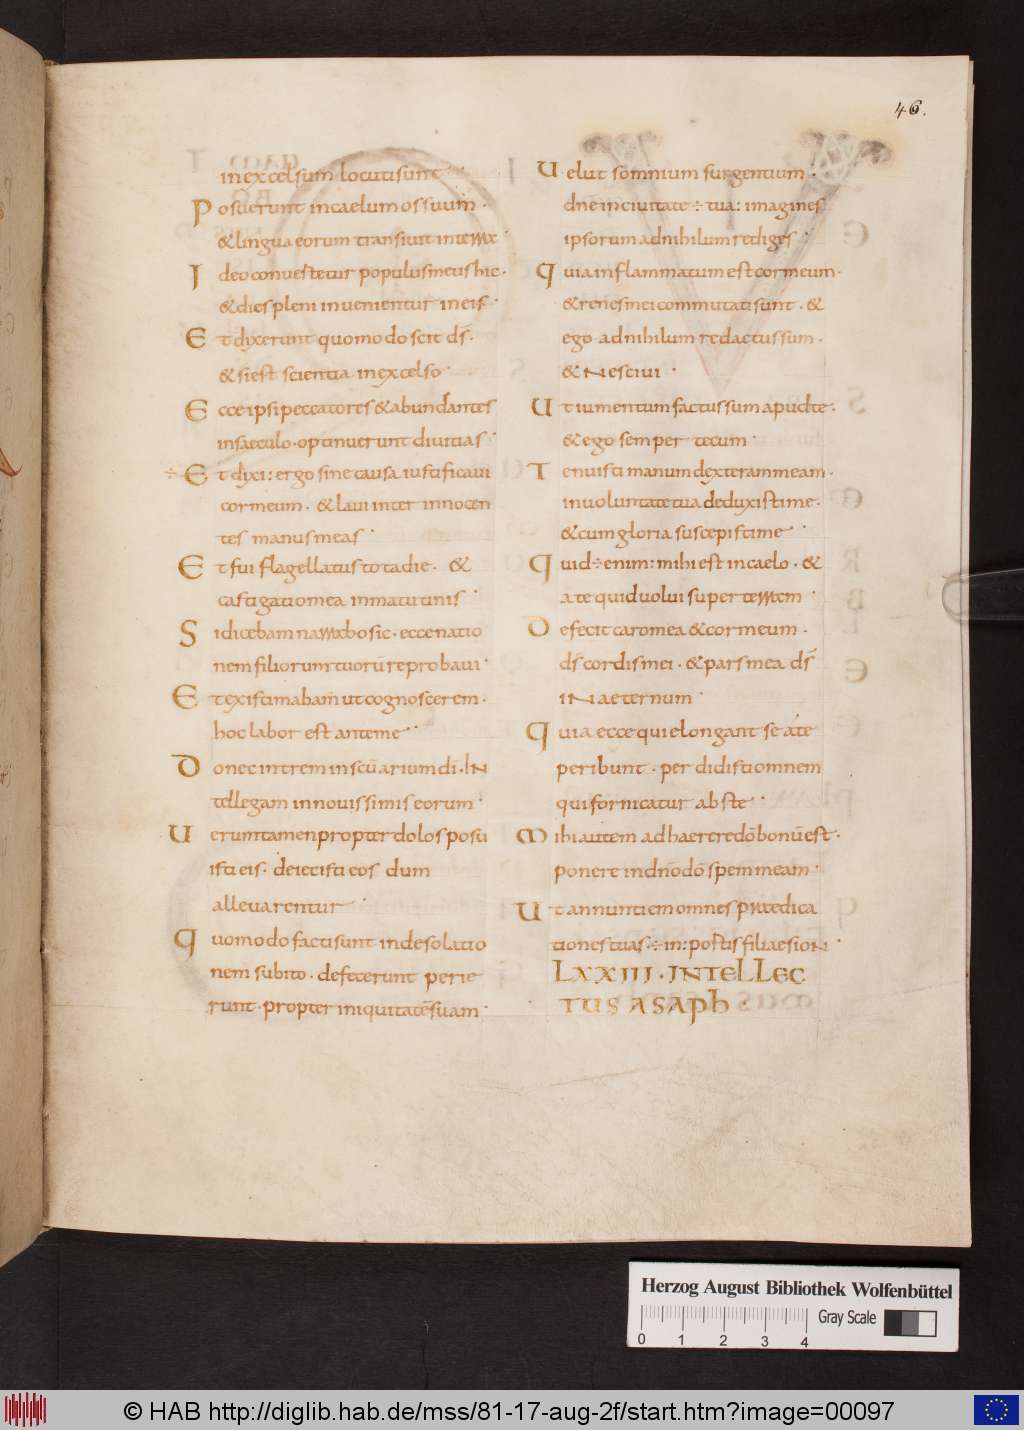 46.
in excelsum locuti sunt·
Posuerunt in caelum os suum·
& lingua eorum transiuit in terra·
Ideo conuertetur populus meus hic·
& dies pleni inuenientur in eis·
Et dixerunt quomodo scit ds̄·
& si est scientia in excelso·
Ecce ipsi peccatores & abundantes
in saeculo· optinuerunt diuitias·
÷ Et dixi: ergo sine causa iustificaui
cor meum· & laui inter innocen
tes manus meas·
Et fui flagellatus tota die· &
castigatio mea in matutinis·
Si dicebam narrabo sic· ecce natio
nem filiorum tuorū reprobaui·
Et existimabam̄ ut cognoscerem·
hoc labor est ante me·
Donec intrem in scūarium dī· IN
tellegam in nouissimis eorum·
Uerumtamen propter dolos posu
isti eis· deiecisti eos dum
alleuarentur·
Quomodo facti sunt in desolatio
nem subito· defecerunt perie
runt· propter iniquitatē suam·
Uelut somnium surgentium·
dn̄e in ciuitate ÷ tua: imagines
ipsorum ad nihilum rediges·
Quia inflammatum est cor meum·
& renes mei commutati sunt· &
ego ad nihilum redactus sum·
& Nesciui·
Ut iumentum factus sum apud te·
& ego semper tecum·
Tenuisti manum dexteram meam·
in uoluntate tua deduxisti me·
& cum gloria suscepisti me·
Quid ÷ enim: mihi est in caelo· &
a te quid uolui super terram·
Defecit caro mea & cor meum·
ds̄ cordis mei· & pars mea ds̄
iN aeternum·
Quia ecce qui elongant se a te
peribunt· perdidisti omnem
qui fornicatur abs te·
Mihi autem adhaerere dō bonū est·
ponere in dn̄o dō spem meam·
Ut annuntiem omnes praedica
tiones tuas· ÷ in: portis filiae sioN·
LXXIII· INTELLEC
TUS ASAPh·
Herzog August Bibliothek Wolfenbüttel
0 1 2 3 4 Gray Scale
© HAB http://diglib.hab.de/mss/81-17-aug-2f/start.htm?image=00097